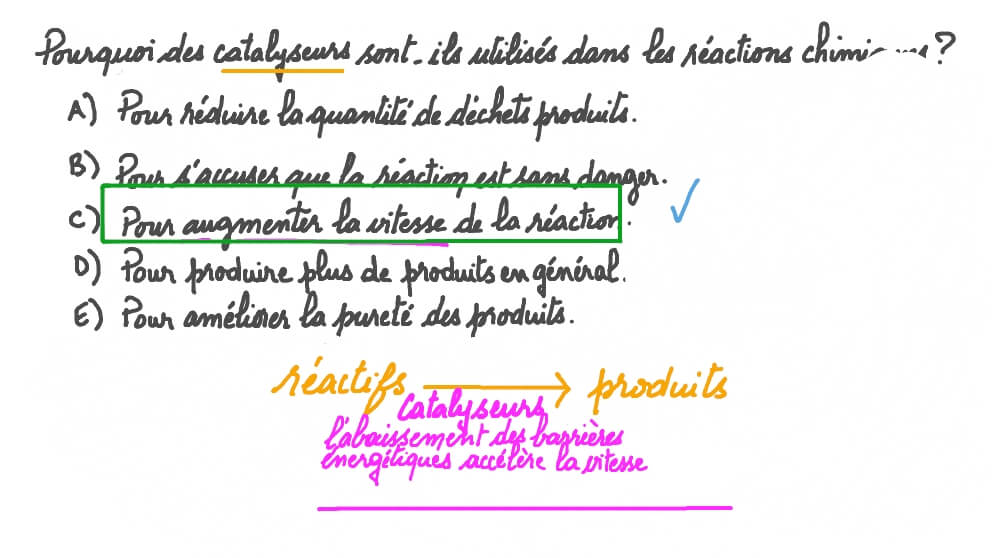 Pourquoi des catalyseurs sont-ils utilisés dans les réactions ?
A) Pour réduire la quantité de déchets produits.
B) Pour s'accuser que la réaction est sans danger.
C) Pour augmenter la vitesse de la réaction.
D) Pour produire plus de produits en général.
E) Pour améliorer la pureté des produits.
réactifs → produits
catalyseurs
l'abaissement des barrières
énergétiques accélère la vitesse